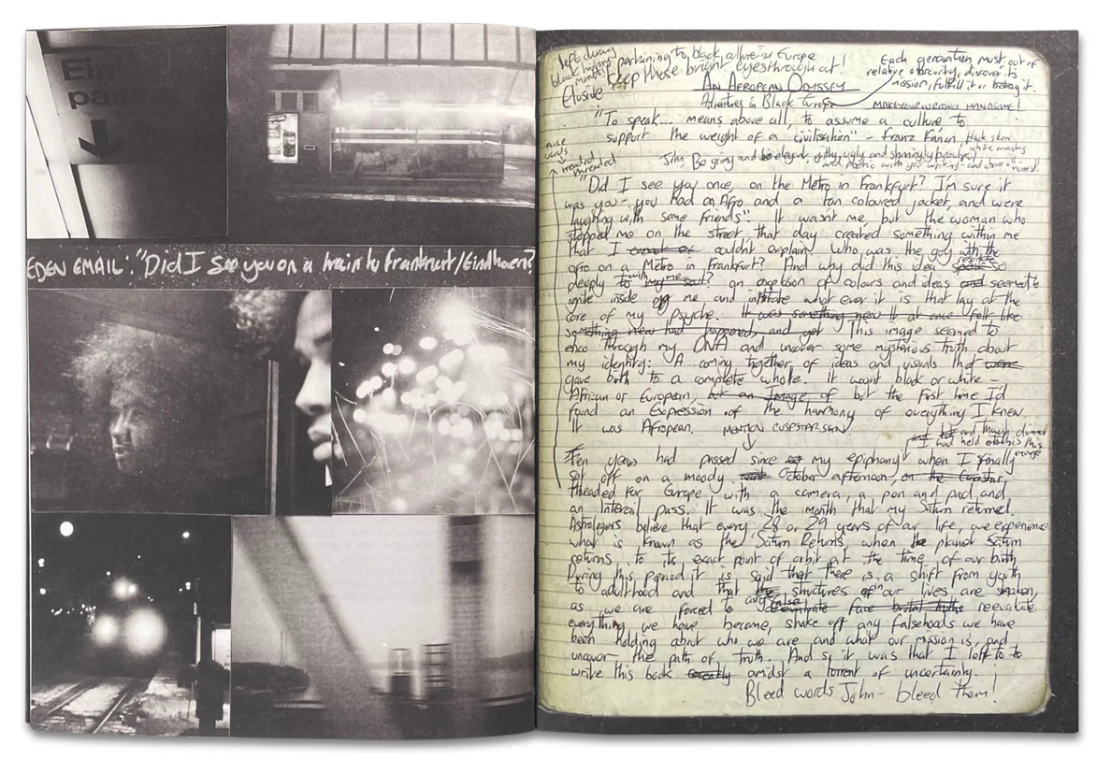 Ein
pa
EDEN EMAIL: "Did I See you on a train to Frankfurt/Eindhoven?
pertaining to black culture in Europe
Keep those bright eyes through at!
Elusive
Each generation must out of
relative obscurity, discover its
mission, fulfill it or betray it.
AN AFROPEAN ODYSSEY
Adventures in Black Europe
MAKE YOUR WRITING HANDSOME!
"To speak... means above all, to assume a culture to
support the weight of a civilisation" - Franz Fanon, black skin
white masks
John Be grimy and elegant, gritty, ugly and
"Did I see you once, on the Metro in Frankfurt? I'm sure it
was you - you had an Afro and a tan coloured jacket, and were
laughing with some friends". It wasnt me, but the woman who
stopped me on the street that day created something within me
that I cannot or couldn't explain. Who was the guy with the
afro on a Metro in Frankfurt? And why did this idea so
deeply to my soul? an explosion of colours and ideas and seemed to
ignite inside of me and infiltrate what ever it is that lay at the
core of my psyche. It was something new It at once felt like
something new had happened, and yet This image seemed to
echo through my DNA and uncover some mysterious truth about
my identity: A coming together of ideas and visuals that were
gave birth to a complete whole. It wasnt black or white -
African or European, but an image of but the first time I'd
found an Expression of the harmony of everything I knew.
It was Afropean.
and though
I had held onto this
image
Ten years had passed since my epiphany when I finally
set off on a moody October afternoon, on the Eurostar,
headed for Europe with a camera, a pen and pad, and
an Interrail pass. It was the month that my Saturn returned.
Astrologers believe that every 28 or 29 years of our life, we experience
what is known as the 'Saturn Returns' when the planet Saturn
returns to its exact point of orbit at the time of our birth.
During this period it is said that there is a shift from youth
to adulthood and that the structures of our lives are shaken,
as we are forced to face brutal truths reevaluate
everything we have become, shake off any falsehoods we have
been holding about who we are and what our mission is, and
uncover the path of truth. And so it was that I left to to
write this book amidst a torrent of uncertainty.
Bleed words John - bleed them!